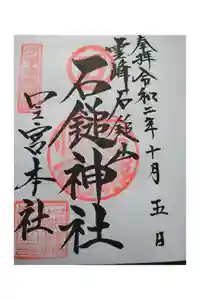 奉拝 令和二年十月五日
霊峰石鎚山
石鎚神社
口之宮本社